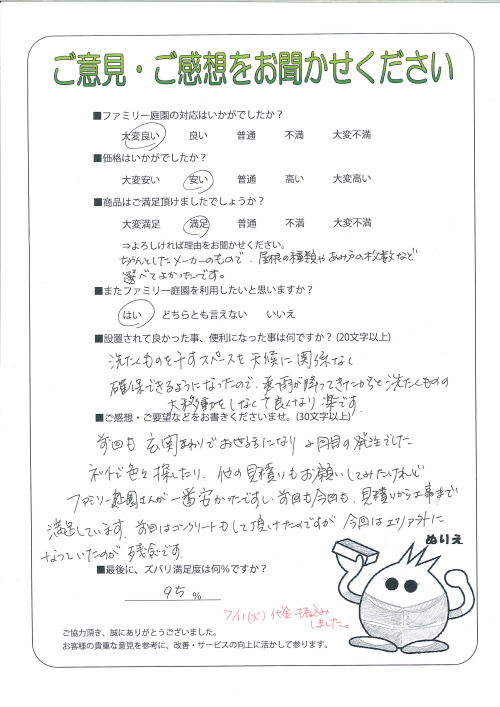 ご意見・ご感想をお聞かせください
■ファミリー庭園の対応はいかがでしたか？
大変良い 良い 普通 不満 大変不満
■価格はいかがでしたか？
大変安い 安い 普通 高い 大変高い
■商品はご満足頂けましたでしょうか？
大変満足 満足 普通 不満 大変不満
⇒よろしければ理由をお聞かせください。
ちゃんとしたメーカーのもので、屋根の種類やあみ戸の枚数など
選べてよかったです。
■またファミリー庭園を利用したいと思いますか？
はい どちらとも言えない いいえ
■設置されて良かった事、便利になった事は何ですか？(20文字以上)
洗たくものを干すスペースを天候に関係なく
確保できるようになったので、雨が降ってきたからと洗たくものの
大移動をしなくて良くなり楽です。
■ご感想・ご要望などをお書きくださいませ。(30文字以上)
前回も玄関まわりでお世話になり2回目の発注でした
ネットで色々探したり、他の見積りもお願いしてみたけれど
ファミリー庭園さんが一番安かったですし、前回も今回も、見積りから工事まで
満足しています。前回はコンクリートもして頂けたのですが今回はエリア外に
なっていたのが残念です。
ぬりえ
■最後に、ズバリ満足度は何％ですか？
95 %
7/11(火) 代金振込み
しました。
ご協力頂き、誠にありがとうございました。
お客様の貴重な意見を参考に、改善・サービスの向上に活かして参ります。